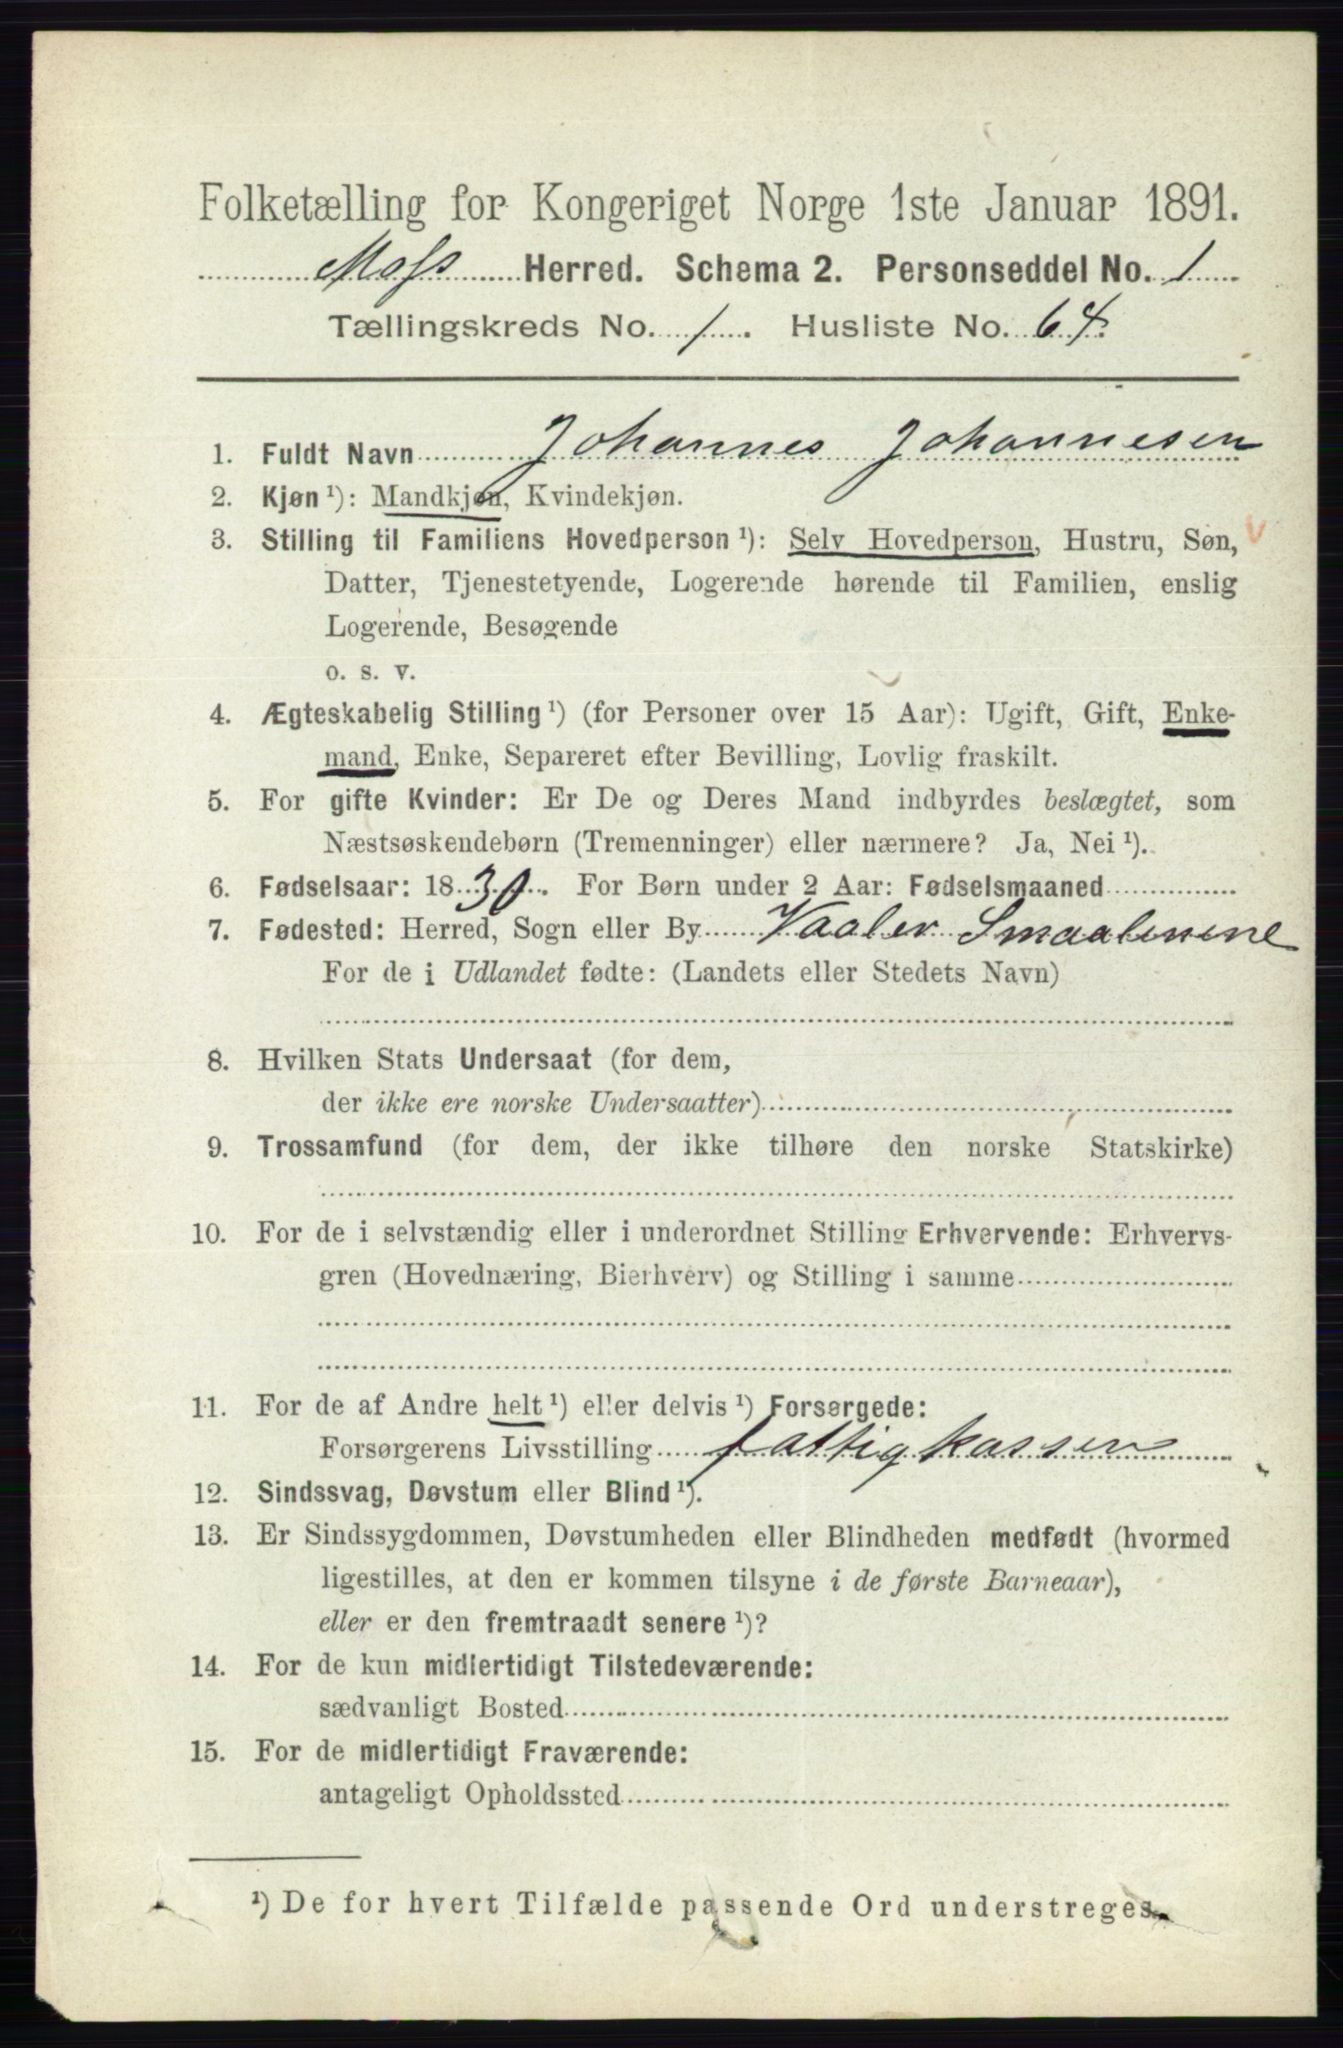 Folketælling for Kongeriget Norge 1ste Januar 1891.
Moss Herred. Schema 2. Personseddel No. 1
Tællingskreds No. 1. Husliste No. 64.
1. Fuldt Navn Johannes Johannesen
2. Kjøn ¹): Mandkjøn, Kvindekjøn.
3. Stilling til Familiens Hovedperson ¹): Selv Hovedperson, Hustru, Søn,
Datter, Tjenestetyende, Logerende hørende til Familien, enslig
Logerende, Besøgende
o. s. v.
4. Ægteskabelig Stilling ¹) (for Personer over 15 Aar): Ugift, Gift, Enke-
mand, Enke, Separeret efter Bevilling, Lovlig fraskilt.
5. For gifte Kvinder: Er De og Deres Mand indbyrdes beslægtet, som
Næstsøskendebørn (Tremenninger) eller nærmere? Ja, Nei ¹).
6. Fødselsaar: 1830. For Børn under 2 Aar: Fødselsmaaned
7. Fødested: Herred, Sogn eller By Vaaler Smaalenene
For de i Udlandet fødte: (Landets eller Stedets Navn)
8. Hvilken Stats Undersaat (for dem,
der ikke ere norske Undersaatter)
9. Trossamfund (for dem, der ikke tilhøre den norske Statskirke)
10. For de i selvstændig eller i underordnet Stilling Erhvervende: Erhvervs-
gren (Hovednæring, Bierhverv) og Stilling i samme
11. For de af Andre helt ¹) eller delvis ¹) Forsørgede:
Forsørgerens Livsstilling fattigkassen
12. Sindssvag, Døvstum eller Blind ¹).
13. Er Sindssygdommen, Døvstumheden eller Blindheden medfødt (hvormed
ligestilles, at den er kommen tilsyne i de første Barneaar),
eller er den fremtraadt senere ¹)?
14. For de kun midlertidigt Tilstedeværende:
sædvanligt Bosted
15. For de midlertidigt Fraværende:
antageligt Opholdssted
¹) De for hvert Tilfælde passende Ord understreges.